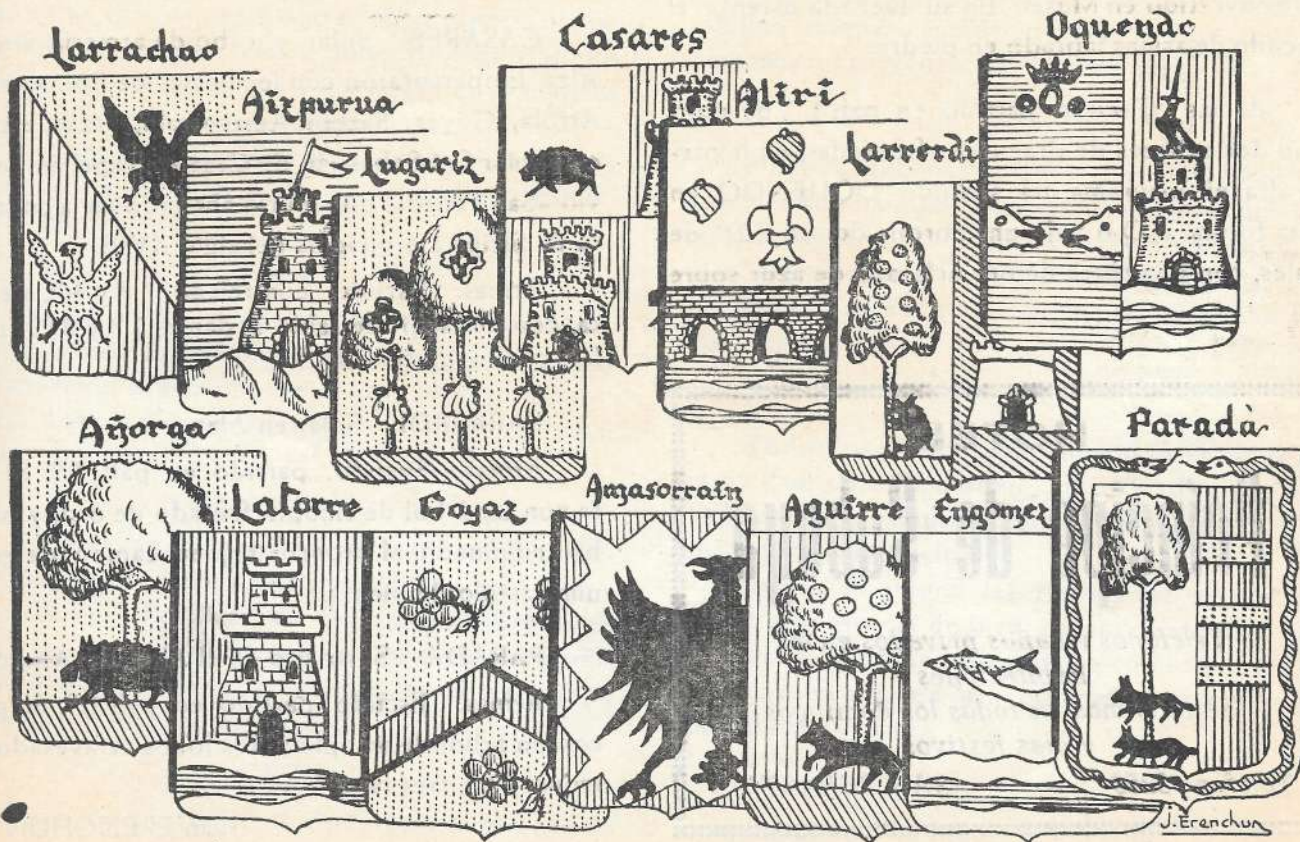 Larrachao
Aizpurua
Lugariz
Casares
Aliri
Larrerdi
Oquendo
Q
Añorga
Latorre
Goyaz
Amasorrain
Aguirre
Engomez
Parada
J. Erenchun